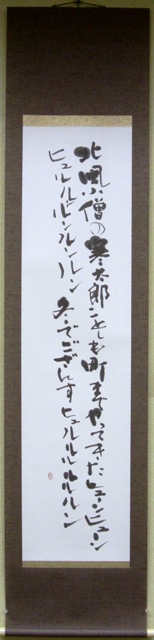 北風小僧の寒太郎ことしも町までやってきたヒューンヒューン
ヒュルルルンルンルン 冬でござんすヒュルルルルルルン